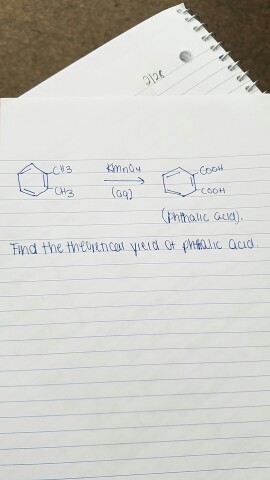 2/28
CH3 KMnO4 COOH
CH3 (aq) COOH
(phthalic acid).
Find the theoretical yield of phthalic acid.